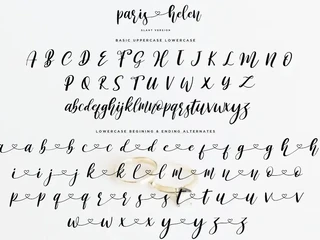 paris helen
SLANT VERSION
BASIC UPPERCASE LOWERCASE
A B C D E F G H I J K L M N O
P Q R S T U V W X Y Z
abcdefghijklmnopqrstuvwxyz
LOWERCASE BEGINING & ENDING ALTERNATES
a a b b c c d d e e f f g g h h
i i j j k k l l m m n n o o
p p q q r r s s t t u u v v
w w x x y y z z